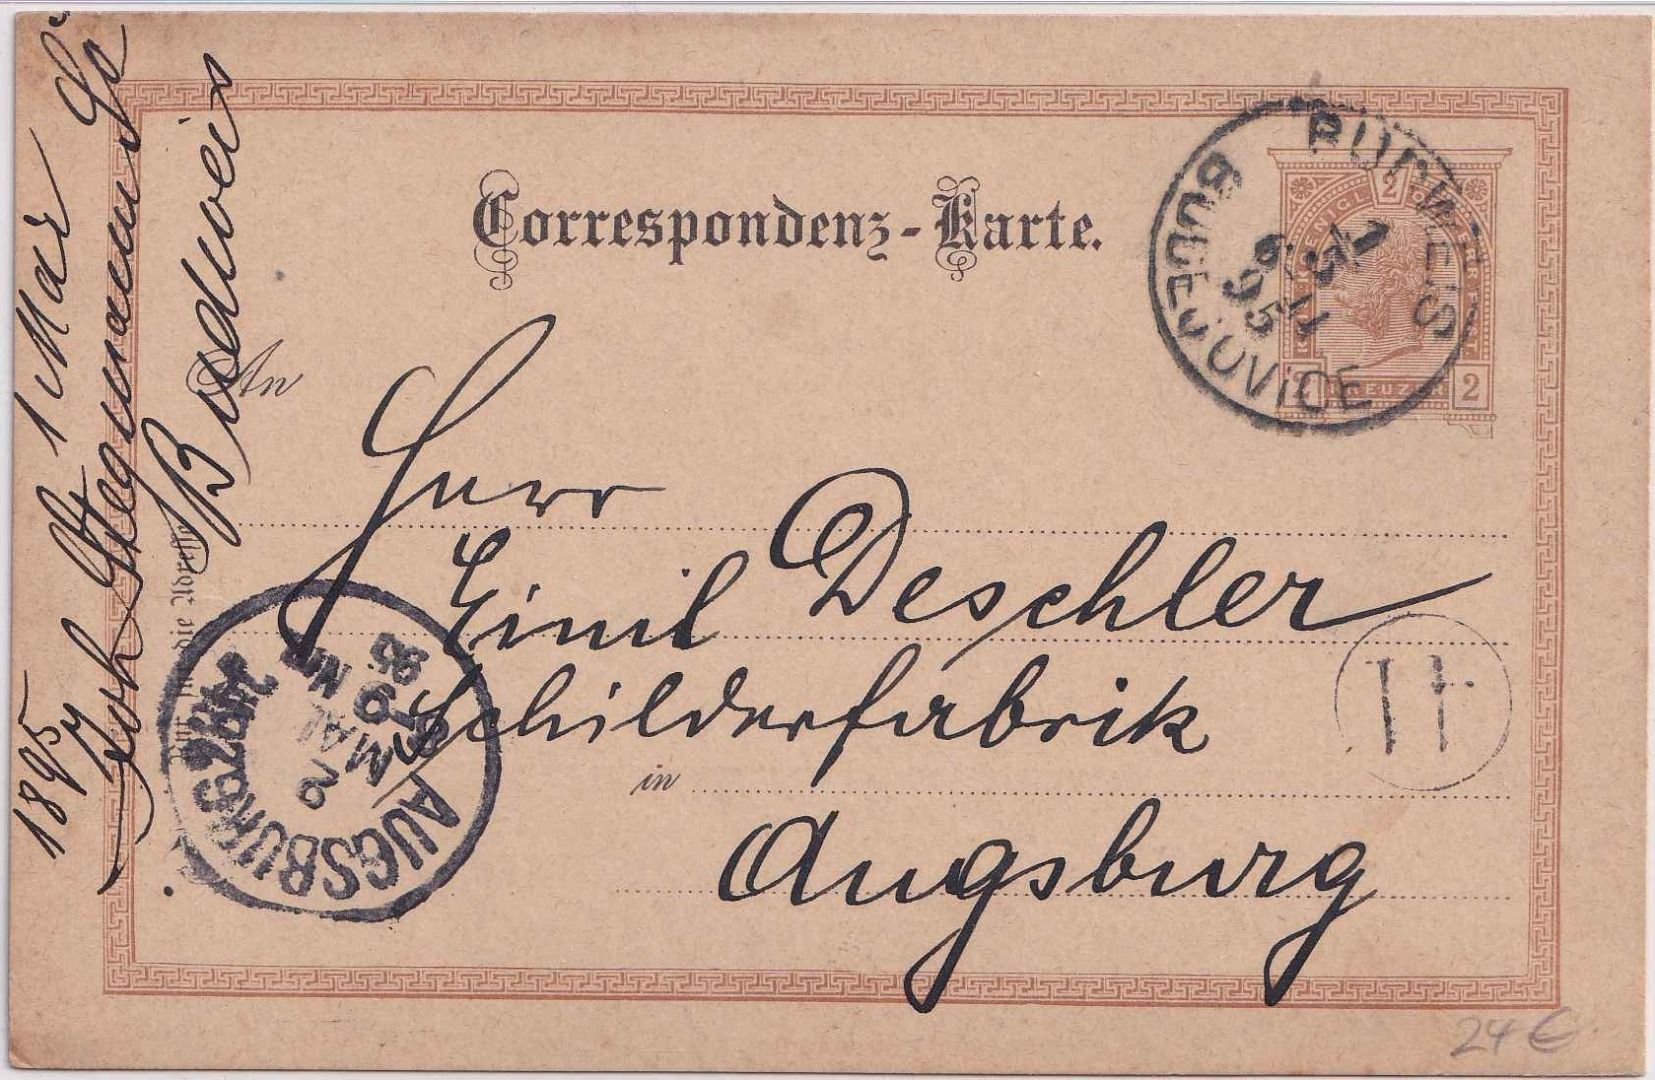 Correspondenz-Karte.
An
Herr
Emil Deschler
Schilderfabrik
in
Augsburg
1895 1 Mai
Joh Stegmann
Budweis
BUDWEIS
BUDĚJOVICE
1 5 11
95
2 2 2
KREUZER
AUGSBURG 2
2 MAI
NM
95
H
24 €